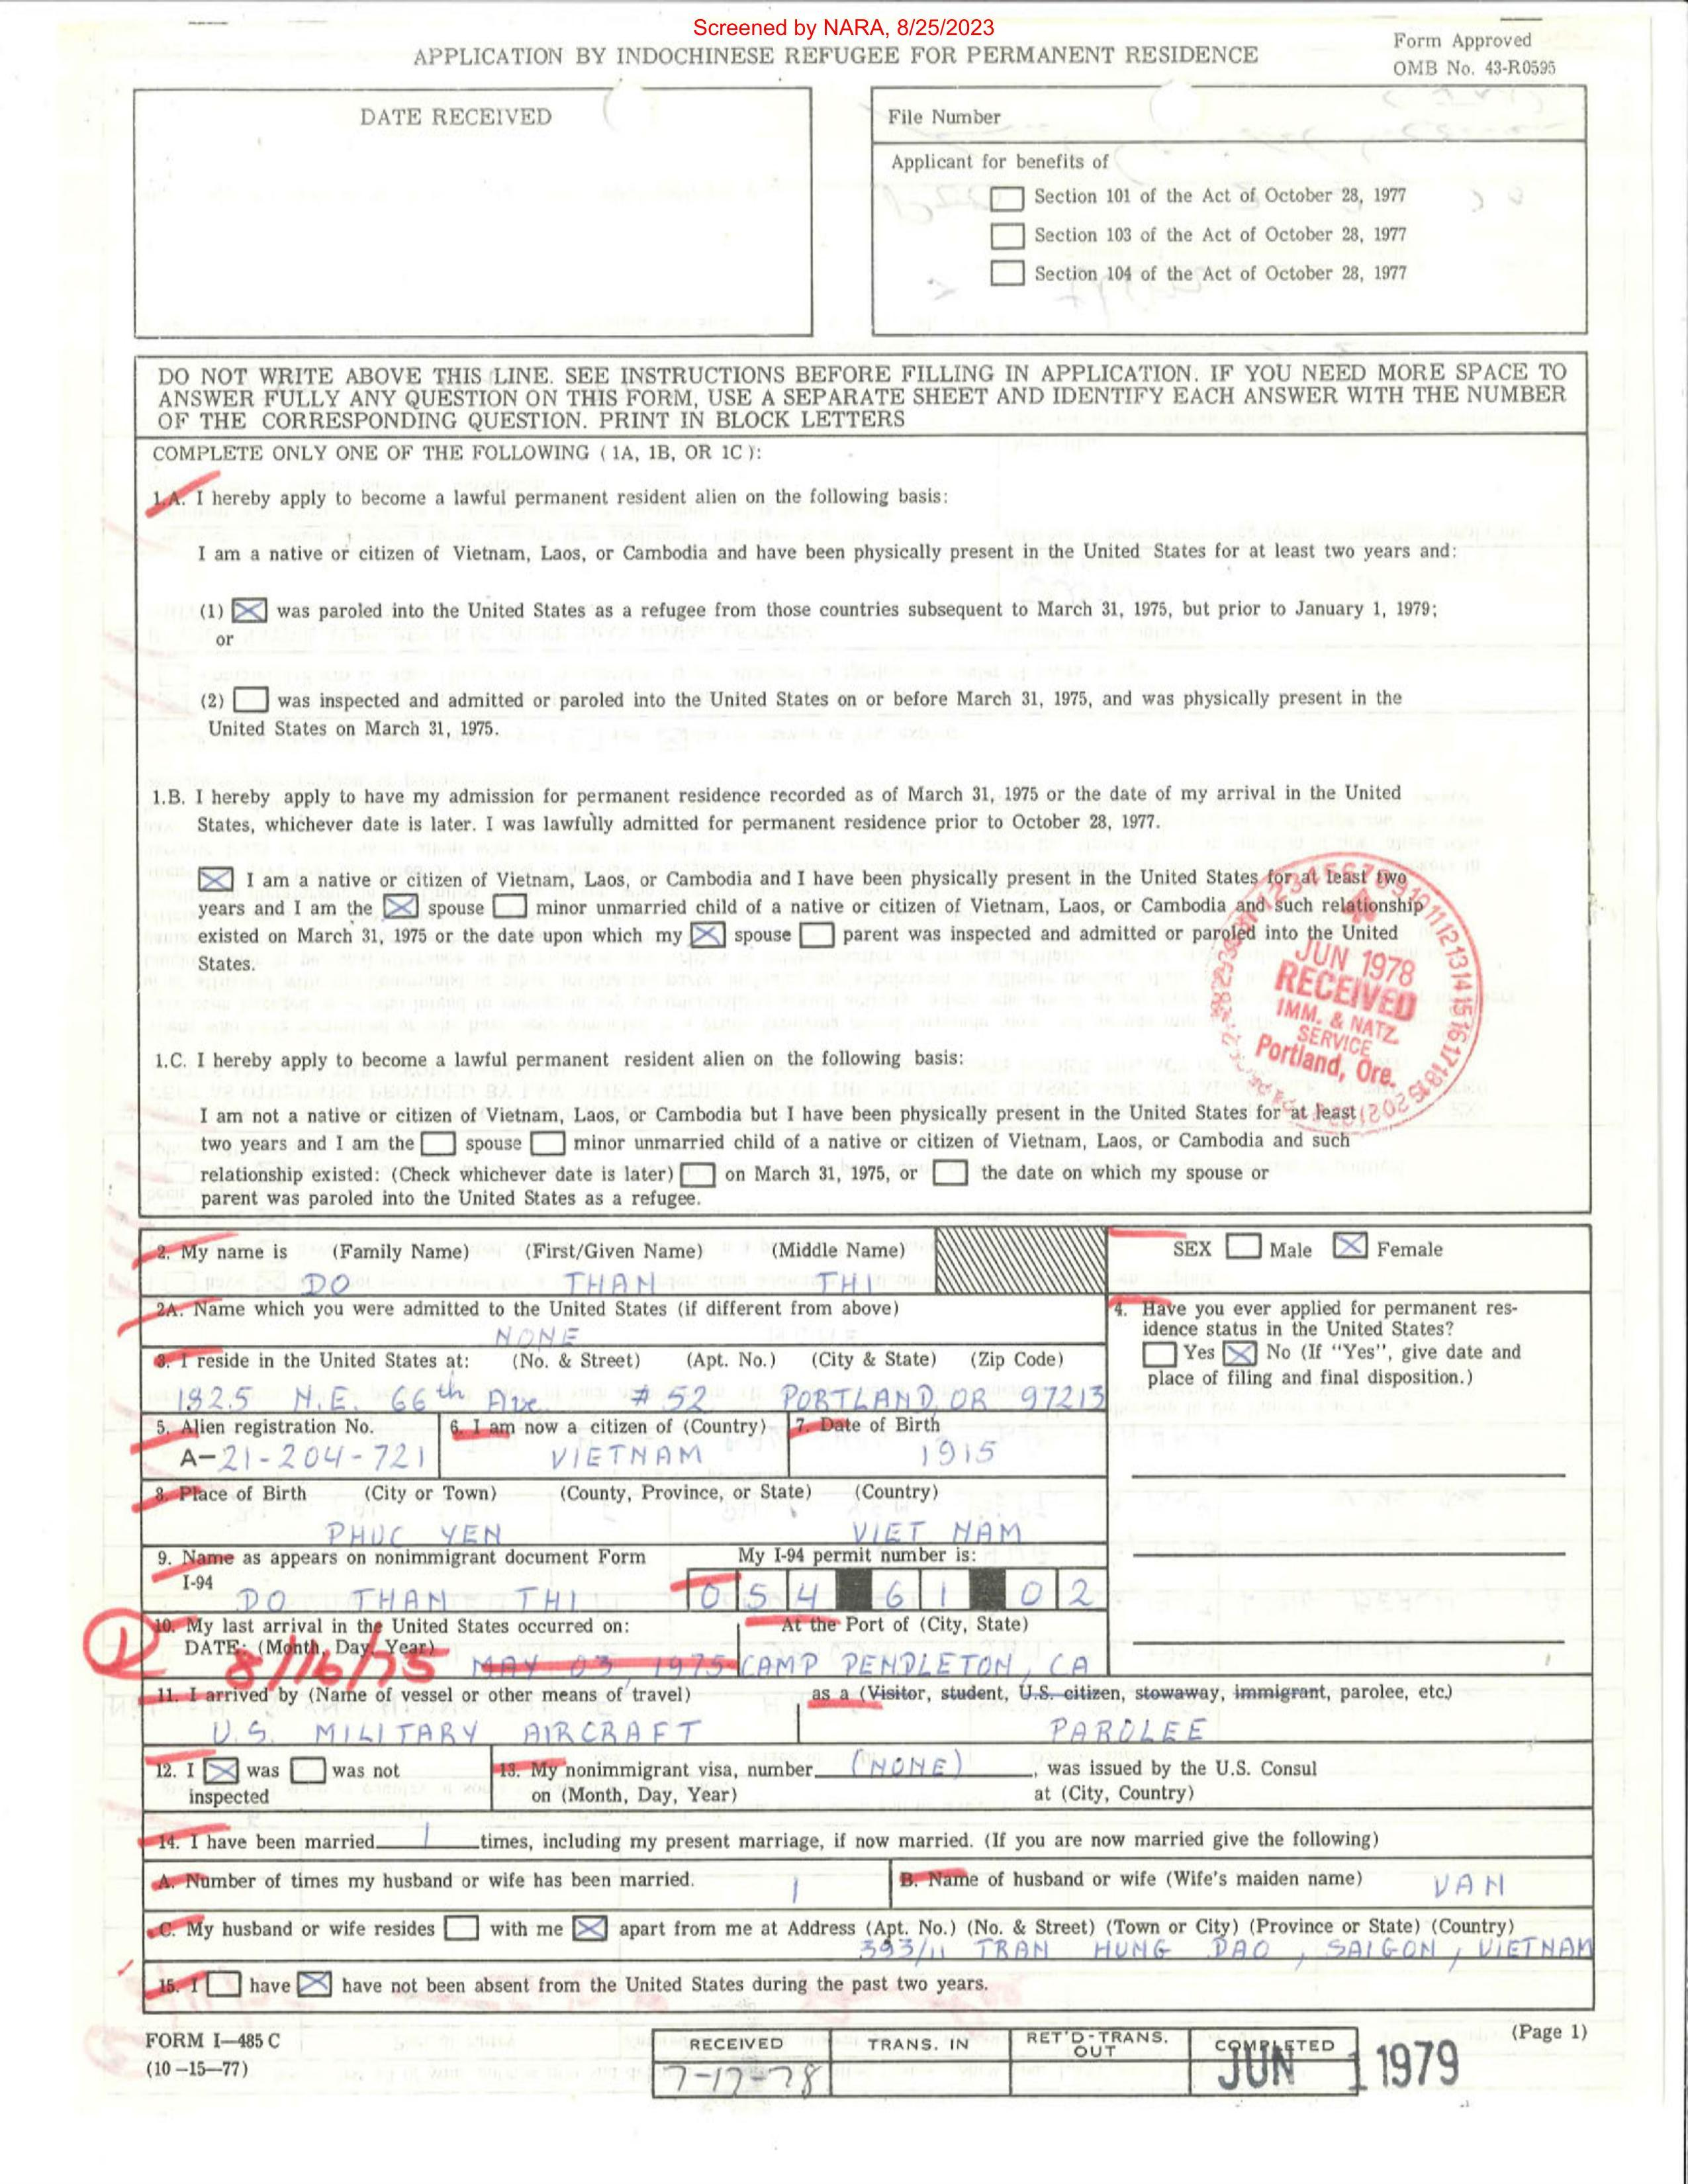 Screened by NARA, 8/25/2023
APPLICATION BY INDOCHINESE REFUGEE FOR PERMANENT RESIDENCE
Form Approved
OMB No. 43-R0595
DATE RECEIVED
File Number
Applicant for benefits of
Section 101 of the Act of October 28, 1977
Section 103 of the Act of October 28, 1977
Section 104 of the Act of October 28, 1977
DO NOT WRITE ABOVE THIS LINE. SEE INSTRUCTIONS BEFORE FILLING IN APPLICATION. IF YOU NEED MORE SPACE TO
ANSWER FULLY ANY QUESTION ON THIS FORM, USE A SEPARATE SHEET AND IDENTIFY EACH ANSWER WITH THE NUMBER
OF THE CORRESPONDING QUESTION. PRINT IN BLOCK LETTERS
COMPLETE ONLY ONE OF THE FOLLOWING ( 1A, 1B, OR 1C ):
1.A. I hereby apply to become a lawful permanent resident alien on the following basis:
I am a native or citizen of Vietnam, Laos, or Cambodia and have been physically present in the United States for at least two years and:
(1) was paroled into the United States as a refugee from those countries subsequent to March 31, 1975, but prior to January 1, 1979;
or
(2) was inspected and admitted or paroled into the United States on or before March 31, 1975, and was physically present in the
United States on March 31, 1975.
1.B. I hereby apply to have my admission for permanent residence recorded as of March 31, 1975 or the date of my arrival in the United
States, whichever date is later. I was lawfully admitted for permanent residence prior to October 28, 1977.
I am a native or citizen of Vietnam, Laos, or Cambodia and I have been physically present in the United States for at least two
years and I am the spouse minor unmarried child of a native or citizen of Vietnam, Laos, or Cambodia and such relationship
existed on March 31, 1975 or the date upon which my spouse parent was inspected and admitted or paroled into the United
States.
JUN 1978
RECEIVED
IMM. & NATZ.
SERVICE
Portland, Ore.
1.C. I hereby apply to become a lawful permanent resident alien on the following basis:
I am not a native or citizen of Vietnam, Laos, or Cambodia but I have been physically present in the United States for at least
two years and I am the spouse minor unmarried child of a native or citizen of Vietnam, Laos, or Cambodia and such
relationship existed: (Check whichever date is later) on March 31, 1975, or the date on which my spouse or
parent was paroled into the United States as a refugee.
2. My name is (Family Name) (First/Given Name) (Middle Name)
DO THAN THI
SEX Male Female
2A. Name which you were admitted to the United States (if different from above)
NONE
4. Have you ever applied for permanent res-
idence status in the United States?
Yes No (If "Yes", give date and
place of filing and final disposition.)
3. I reside in the United States at: (No. & Street) (Apt. No.) (City & State) (Zip Code)
1825 N.E. 66th Ave # 52 PORTLAND, OR 97213
5. Alien registration No. 6. I am now a citizen of (Country) 7. Date of Birth
A-21-204-721 VIETNAM 1915
8. Place of Birth (City or Town) (County, Province, or State) (Country)
PHUC YEN VIET NAM
9. Name as appears on nonimmigrant document Form My I-94 permit number is:
I-94 DO THAN THI 054 61 02
10. My last arrival in the United States occurred on: At the Port of (City, State)
DATE: (Month, Day, Year) 8/16/75 MAY 03, 1975 CAMP PENDLETON, CA
11. I arrived by (Name of vessel or other means of travel) as a (Visitor, student, U.S. citizen, stowaway, immigrant, parolee, etc.)
U.S. MILITARY AIRCRAFT PAROLEE
12. I was was not 13. My nonimmigrant visa, number (NONE), was issued by the U.S. Consul
inspected on (Month, Day, Year) at (City, Country)
14. I have been married 1 times, including my present marriage, if now married. (If you are now married give the following)
A. Number of times my husband or wife has been married. 1 B. Name of husband or wife (Wife's maiden name) VAN
C. My husband or wife resides with me apart from me at Address (Apt. No.) (No. & Street) (Town or City) (Province or State) (Country)
393/11 TRAN HUNG DAO, SAIGON, VIETNAM
15. I have have not been absent from the United States during the past two years.
FORM I-485 C
(10-15-77)
RECEIVED TRANS. IN RET'D-TRANS. OUT COMPLETED
7-17-78 JUN 1 1979
(Page 1)